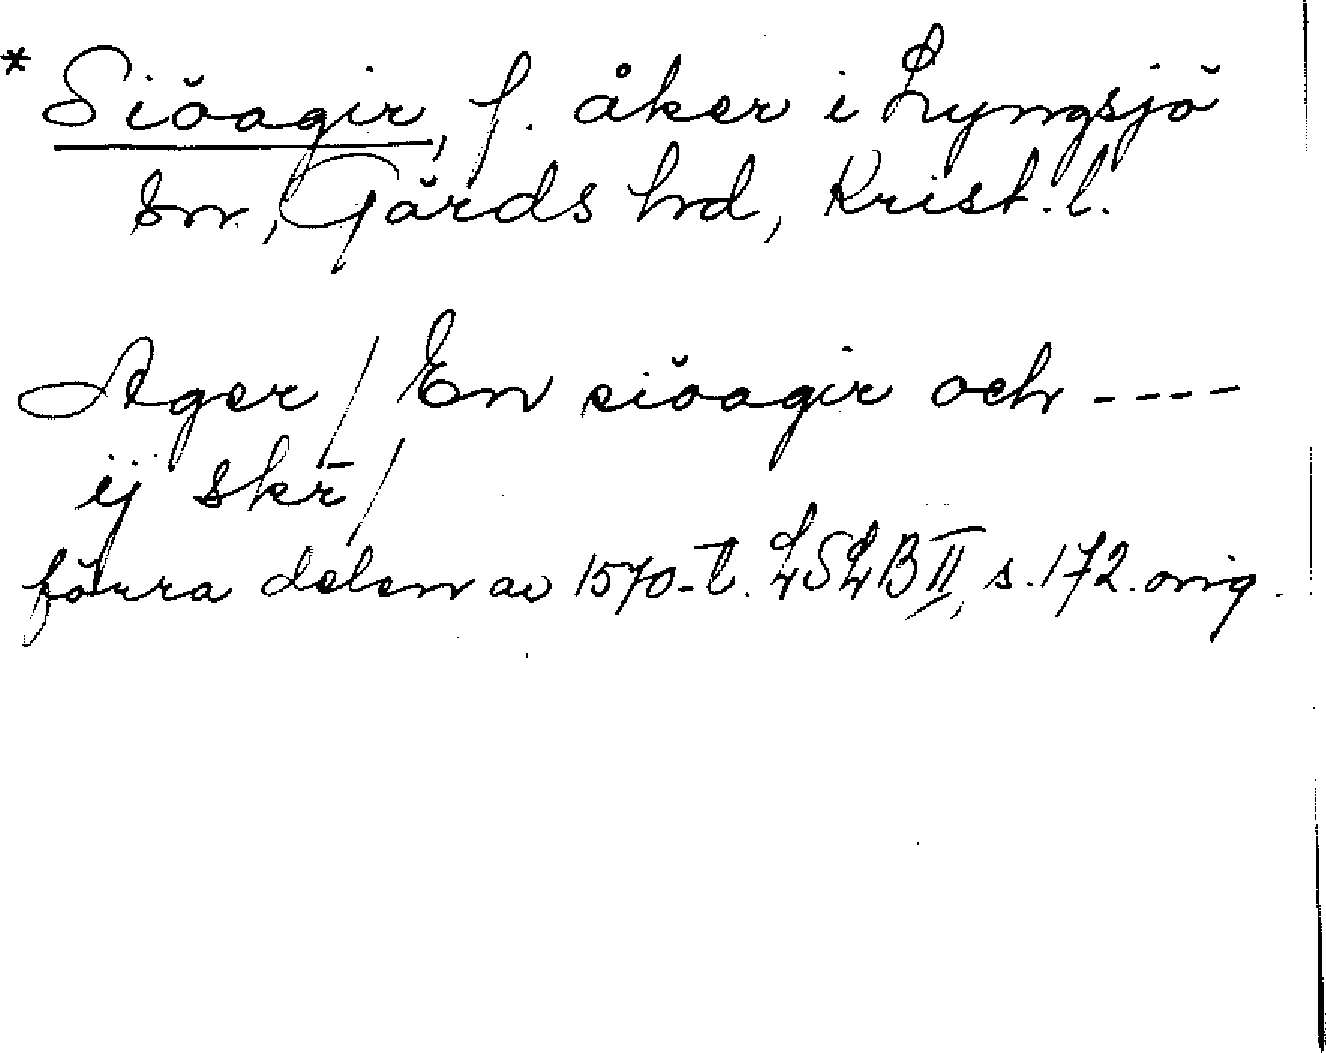 * Siöagir, f. åker i Lyngsjö
sn, Gärds hd, Krist. l.
Ager / En siöagir och ----
ij skr̄ /
förra delen av 1570-t. LSLB II, s. 172. orig.